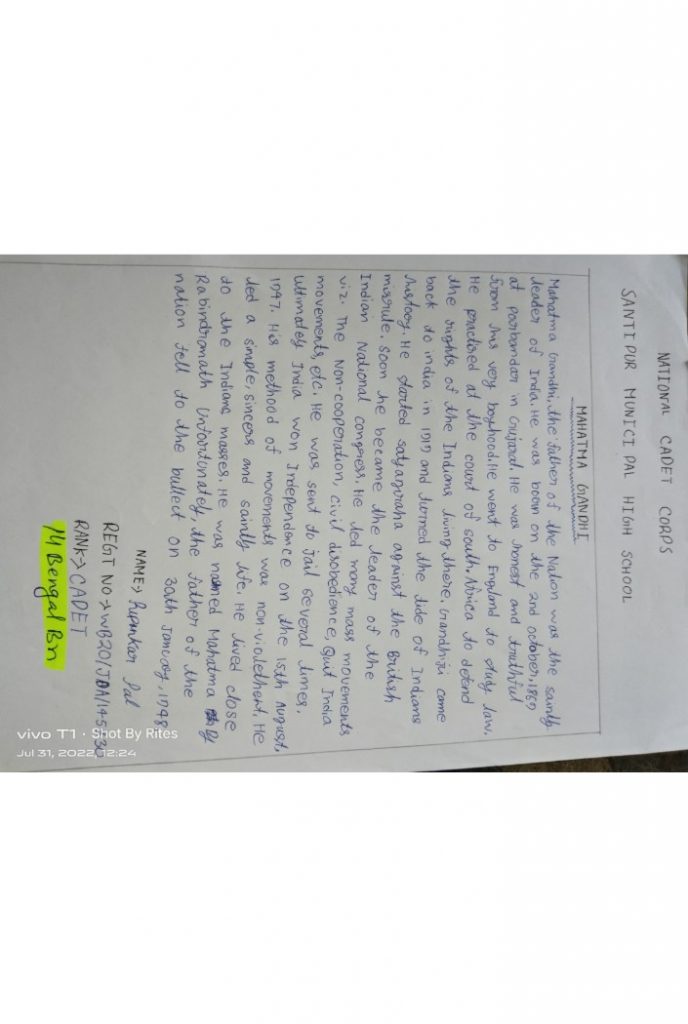 NATIONAL CADET CORPS
SANTIPUR MUNICIPAL HIGH SCHOOL
MAHATMA GANDHI
Mahatma Gandhi, the father of the Nation was the saintly
leader of India. He was born on the 2nd october, 1869
at Porbandar in Gujarat. He was honest and truthful
from his very boyhood. He went to England to study law.
He practised at the court of south Africa to defend
the rights of the Indians living there. Gandhiji came
back to india in 1919 and turned the tide of Indians
history. He started satyagraha against the British
misrule. Soon he became the leader of the
Indian National congress. He led many mass movements
viz. The Non-cooperation, civil disobedience, Quit India
movements, etc. He was sent to jail several times.
Ultimately India won Independence on the 15th August,
1947. His method of movements was non-violethent. He
led a simple, sincers and saintly life. He lived close
to the Indians masses. He was named Mahatma by
Rabindranath Unfortunately, the father of the
nation fell to the bullect on 30th January, 1948
NAME> Rupankar Pal
REGT NO > WB20/JDA/145
RANK> CADET
14 Bengal Bn
vivo T1 · Shot By Rites
Jul 31, 2022, 12:24